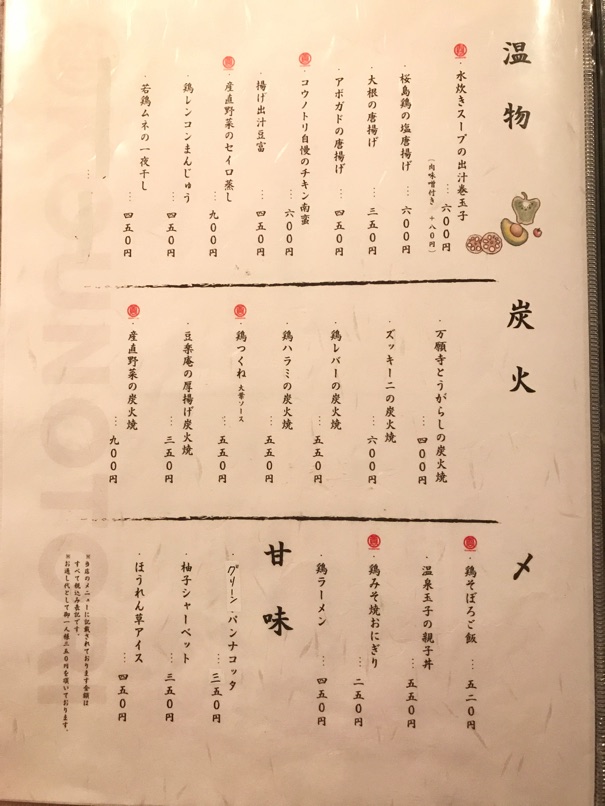 温物
・水炊きスープの出汁巻玉子 … 六〇〇円
(肉味噌付き +八〇円)
・桜島鶏の塩唐揚げ … 六〇〇円
・大根の唐揚げ … 三五〇円
・アボガドの唐揚げ … 四五〇円
・コウノトリ自慢のチキン南蛮 … 六〇〇円
・揚げ出汁豆富 … 四五〇円
・産直野菜のセイロ蒸し … 九〇〇円
・鶏レンコンまんじゅう … 四五〇円
・若鶏ムネの一夜干し … 四五〇円
炭火
・万願寺とうがらしの炭火焼 … 四〇〇円
・ズッキーニの炭火焼 … 六〇〇円
・鶏レバーの炭火焼 … 五五〇円
・鶏ハラミの炭火焼 … 五五〇円
・鶏つくね 大葉ソース … 五五〇円
・豆楽庵の厚揚げ炭火焼 … 三五〇円
・産直野菜の炭火焼 … 九〇〇円
〆
・鶏そぼろご飯 … 五二〇円
・温泉玉子の親子丼 … 五五〇円
・鶏みそ焼おにぎり … 二五〇円
・鶏ラーメン … 四五〇円
甘味
・グリーンパンナコッタ … 三五〇円
・柚子シャーベット … 三五〇円
・ほうれん草アイス … 四五〇円
※当店のメニューに記載されております金額は
すべて税込み表記です。
※お通し代として御一人様三五〇円を頂いております。